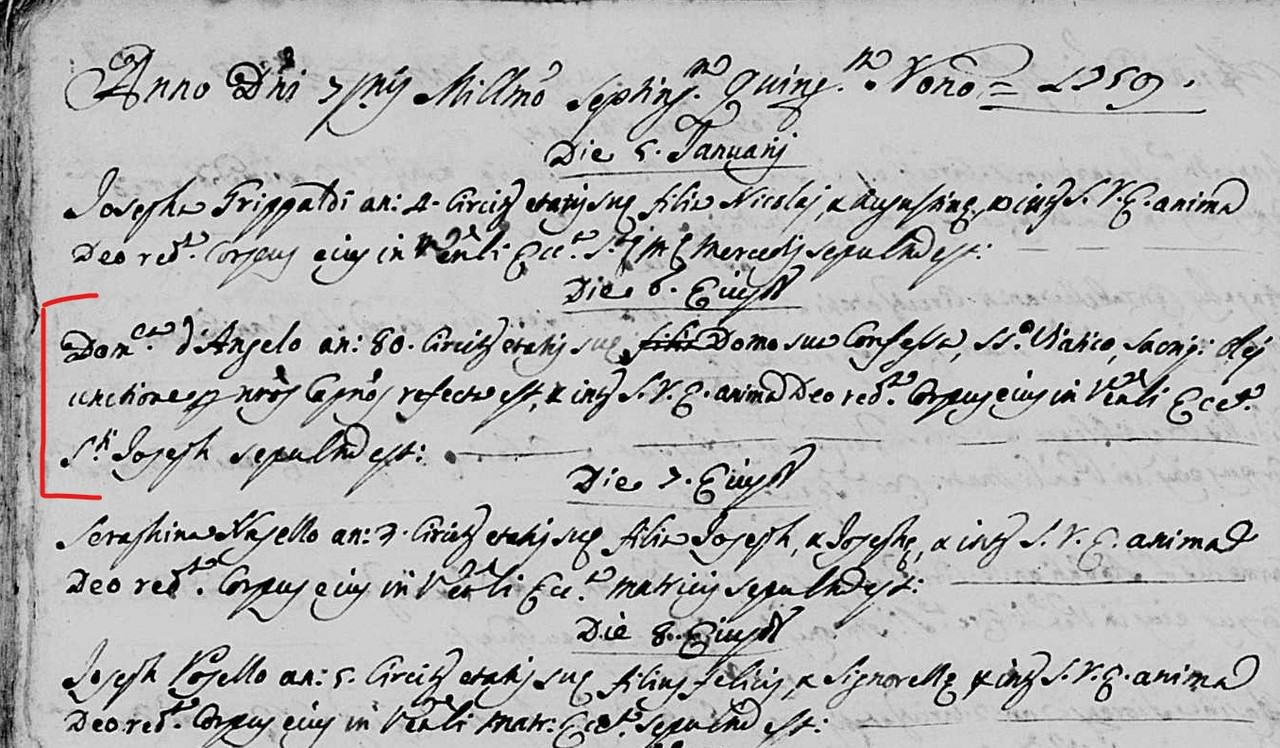 Anno Dñi 7 Ind: Millmo Septing.mo Quinq.mo Nono = 1759.
Die 5. Januarij
Josepha Grippaldi an: 4. Circit: etatis suę filia Nicolaj, & Augustinę, & int: S. M. E. anima
Deo red.t Corpus eius in Ven:li Ecc.a S. M. Mercedis sepultũ est:
Die 6. Eiusd
Dom.ca d'Angelo an: 80. Circit: etatis suę filia Domo sua Confessa, SS.o Viatico, Sacriq: Olej
unctione p nros Capnos refecta est, & int: S. M. E. anima Deo red.t Corpus eius in Ven:li Ecc.a
S.ti Joseph sepultũ est:
Die 7. Eiusd
Seraphina Asello an: 7. Circit: etatis suę filia Joseph, & Josephę, & int: S. M. E. anima
Deo red.t Corpus eius in Ven:li Ecc.a matricis sepultũ est:
Die 8. Eiusd
Joseph Vosello an: 5. Circit: etatis suę filius felicis, & Signorellę & int: S. M. E. anima
Deo red.t Corpus eius in Ven:li matr: Ecc.a sepultũ est: